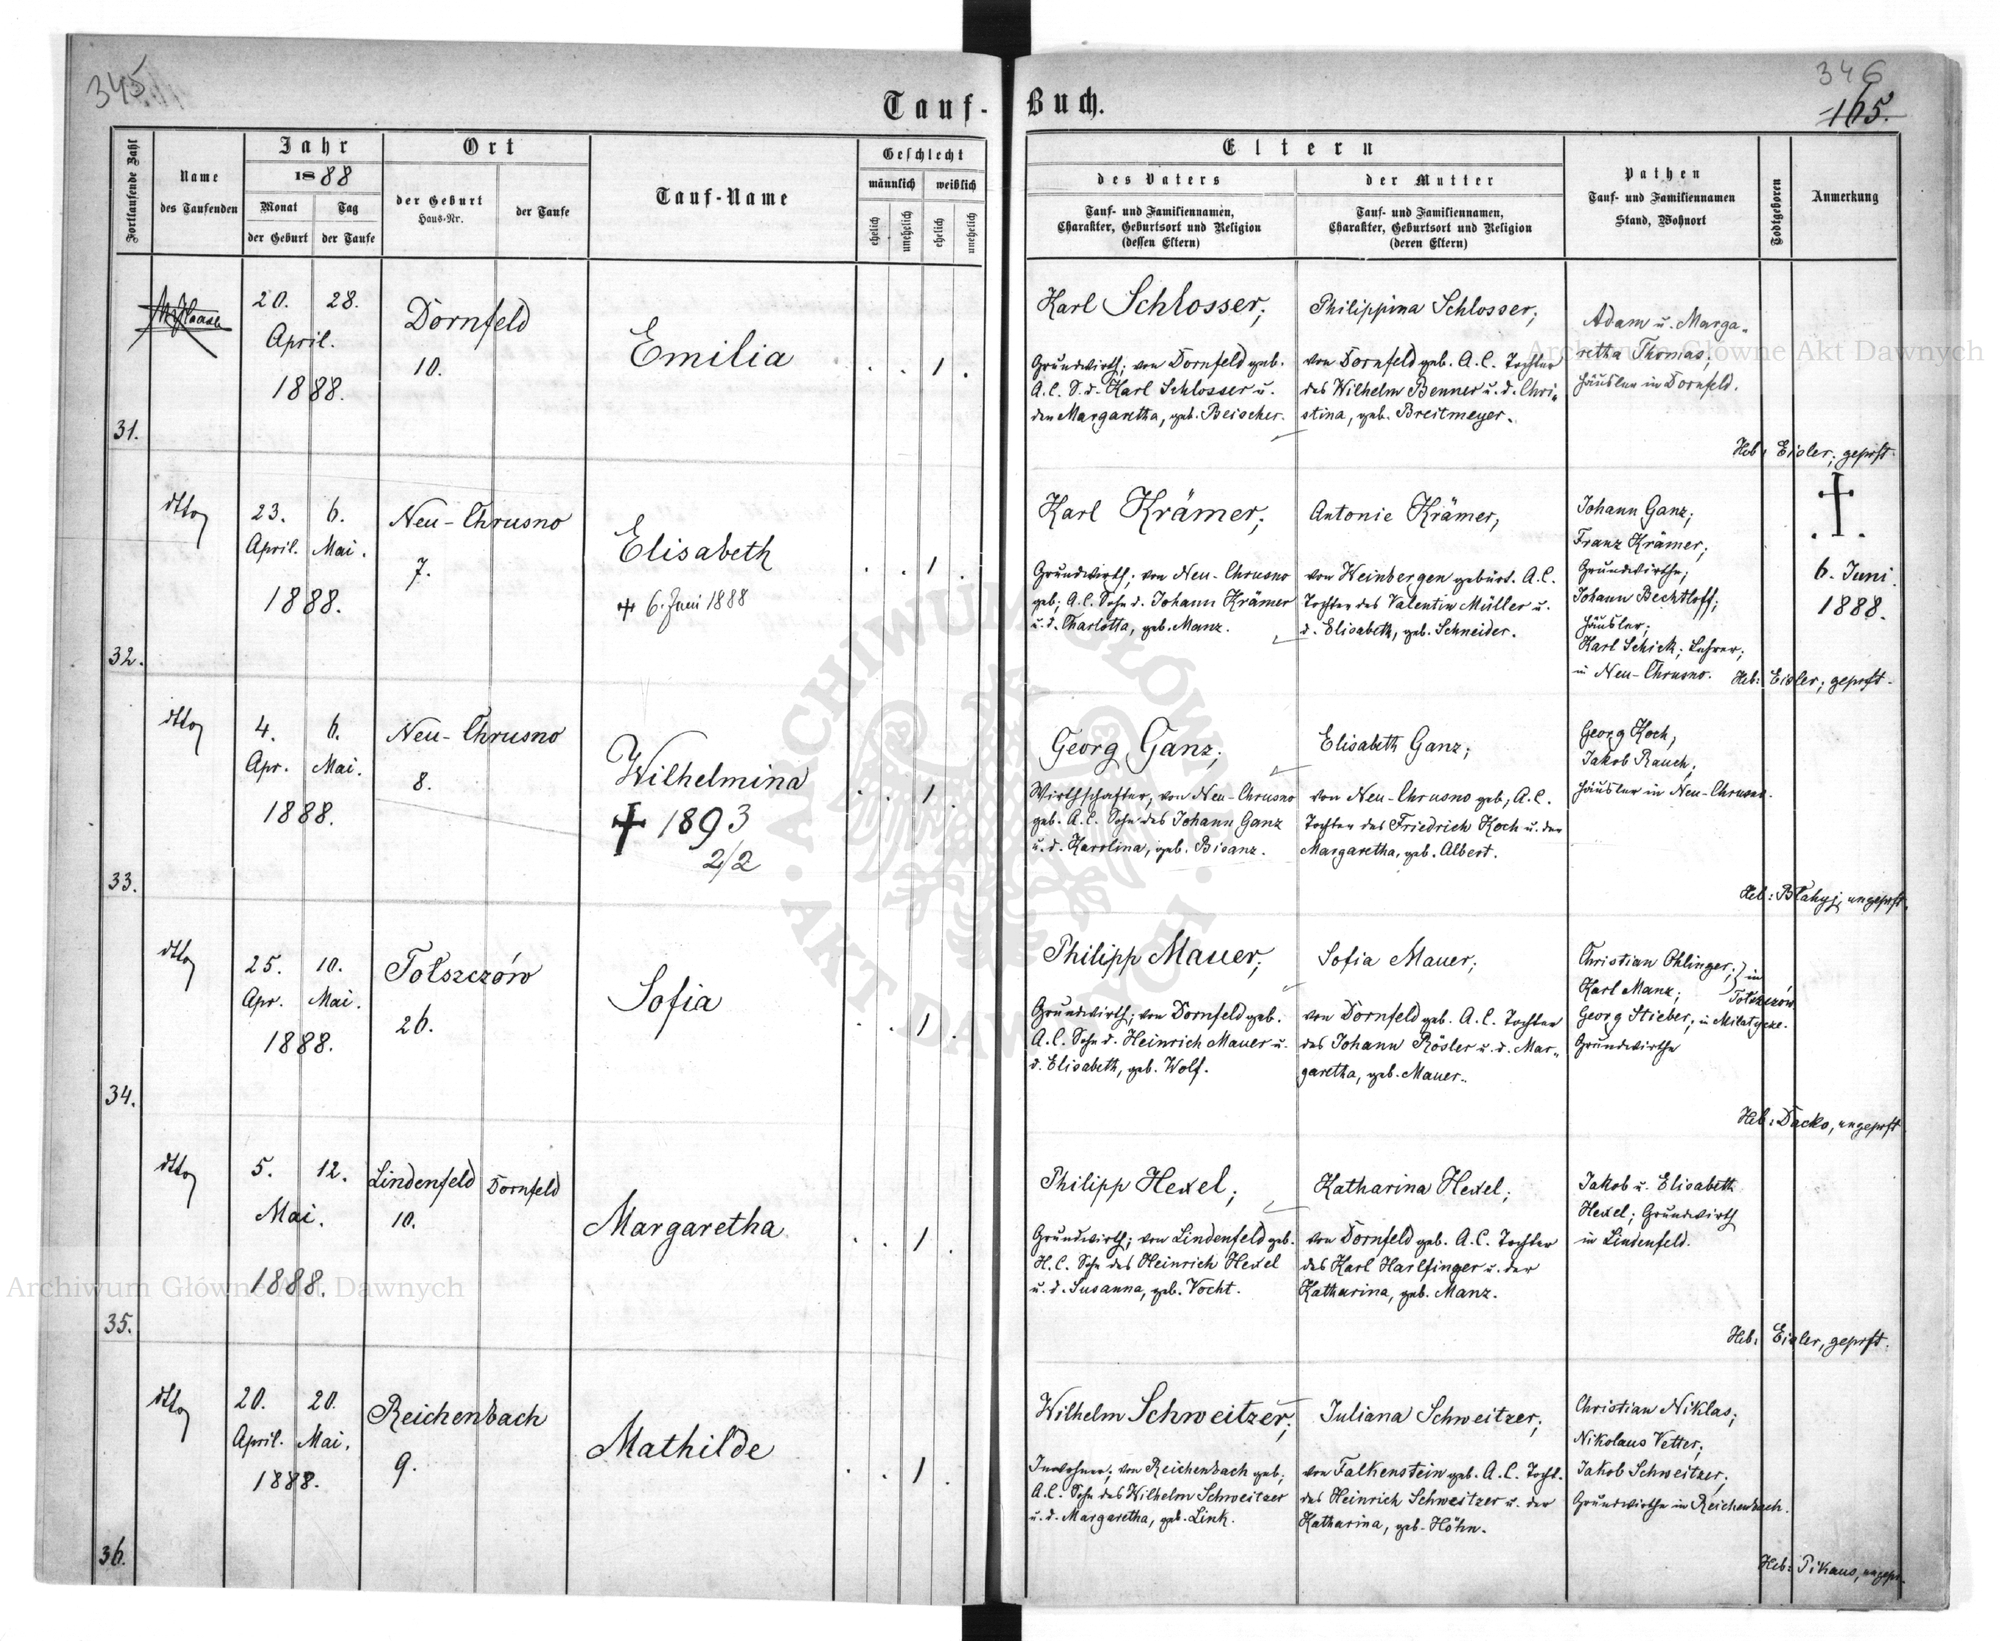 345
346
165.
Tauf-Buch.
Fortlaufende Zahl
Name
des Taufenden
Jahr
1888
Monat
der Geburt
Tag
der Taufe
Ort
der Geburt
Haus-Nr.
der Taufe
Tauf-Name
Geschlecht
männlich
weiblich
ehelich
unehelich
ehelich
unehelich
Eltern
des Vaters
Tauf- und Familiennamen,
Charakter, Geburtsort und Religion
(dessen Eltern)
der Mutter
Tauf- und Familiennamen,
Charakter, Geburtsort und Religion
(deren Eltern)
Pathen
Tauf- und Familiennamen
Stand, Wohnort
Todtgeboren
Anmerkung
31.
20. 28.
April.
1888.
Dornfeld
10.
Emilia
. . 1 .
Karl Schlosser;
Grundwirth; von Dornfeld geb.
A.C. S. d. Karl Schlosser u.
der Margaretha, geb. Beischer.
Philippina Schlosser;
von Dornfeld geb. A.C. Tochter
des Wilhelm Benner u. d. Chri-
stina, geb. Breitmeyer.
Adam u. Marga-
retha Thomas;
Häusler in Dornfeld.
Heb: Eisler; geprft.
32.
dtto
23. 6.
April. Mai.
1888.
Neu-Chrusno
7.
Elisabeth
+ 6. Juni 1888
. . 1 .
Karl Krämer;
Grundwirth; von Neu-Chrusno
geb; A.C. Sohn d. Johann Krämer
u. d. Charlotta, geb. Manz.
Antonie Krämer;
von Weinbergen gebürt. A.C.
Tochter des Valentin Müller u.
d. Elisabeth, geb. Schneider.
Johann Ganz;
Franz Krämer;
Grundwirthe;
Johann Bechtloff;
Häusler;
Karl Schick; Lehrer;
in Neu-Chrusno.
Heb: Eisler; geprft.
†
6. Juni
1888.
33.
dtto
4. 6.
Apr. Mai.
1888.
Neu-Chrusno
8.
Wilhelmina
+ 1893
2/2
. . 1 .
Georg Ganz;
Wirthschafter, von Neu-Chrusno
geb. A.C. Sohn des Johann Ganz
u. d. Karolina, geb. Bisanz.
Elisabeth Ganz;
von Neu-Chrusno geb, A.C.
Tochter des Friedrich Koch u. der
Margaretha, geb. Albert.
Georg Koch,
Jakob Rauch,
Häusler in Neu-Chrusno.
Heb: Błahyj, ungeprft.
34.
dtto
25. 10.
Apr. Mai.
1888.
Tołszczów
26.
Sofia
. . 1 .
Philipp Mauer;
Grundwirth; von Dornfeld geb.
A.C. Sohn d. Heinrich Mauer u.
d. Elisabeth, geb. Wolf.
Sofia Mauer;
von Dornfeld geb. A.C. Tochter
des Johann Rösler u. d. Mar-
garetha, geb. Mauer.
Christian Ohlinger; } in
Karl Manz; Tołszczów
Georg Stieber; in Milatycze.
Grundwirthe
Heb: Dacko, ungeprft
35.
dtto
5. 12.
Mai.
1888.
Lindenfeld Dornfeld
10.
Margaretha
. . 1 .
Philipp Hexel;
Grundwirth; von Lindenfeld geb.
H.C. Sohn des Heinrich Hexel
u. d. Susanna, geb. Vocht.
Katharina Hexel;
von Dornfeld geb. A.C. Tochter
des Karl Harlfinger u. der
Katharina, geb. Manz.
Jakob u. Elisabeth
Hexel; Grundwirth
in Lindenfeld.
Heb: Eisler, geprft.
36.
dtto
20. 20.
April. Mai.
1888.
Reichenbach
9.
Mathilde
. . 1 .
Wilhelm Schweitzer;
Inwohner; von Reichenbach geb;
A.C. Sohn des Wilhelm Schweitzer
u. d. Margaretha, geb. Link.
Juliana Schweitzer;
von Falkenstein geb. A.C. Tocht.
des Heinrich Schweitzer u. der
Katharina, geb. Höhn.
Christian Niklas;
Nikolaus Vetter;
Jakob Schweitzer;
Grundwirthe in Reichenbach.
Heb: Pikaus, ungepr.
Archiwum Główne Akt Dawnych
Archiwum Główne Akt Dawnych
ARCHIWUM GŁÓWNE AKT DAWNYCH